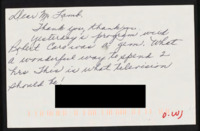 Dear Mr Lamb,
Thank you, thank you.
Yesterday's program with
Robert Cardinas of gem! What
a wonderful way to spend 2
hrs This is what Television
should be!
D.W.